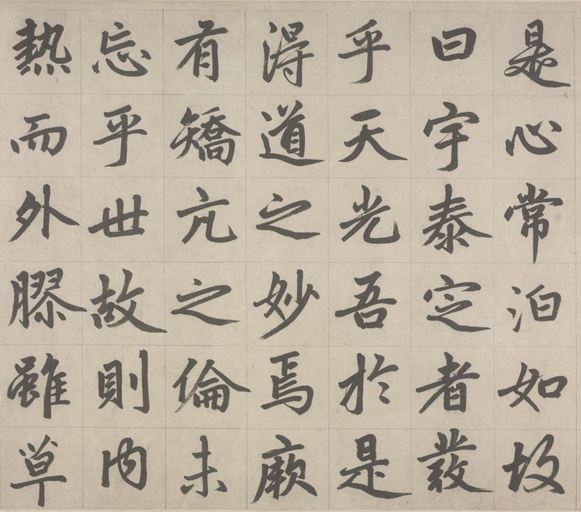 是心常泊如故
曰宇泰定者發
乎天光吾於是
淂道之妙焉厥
有矯亢之倫未
忘乎世故則內
熱而外膠雖草